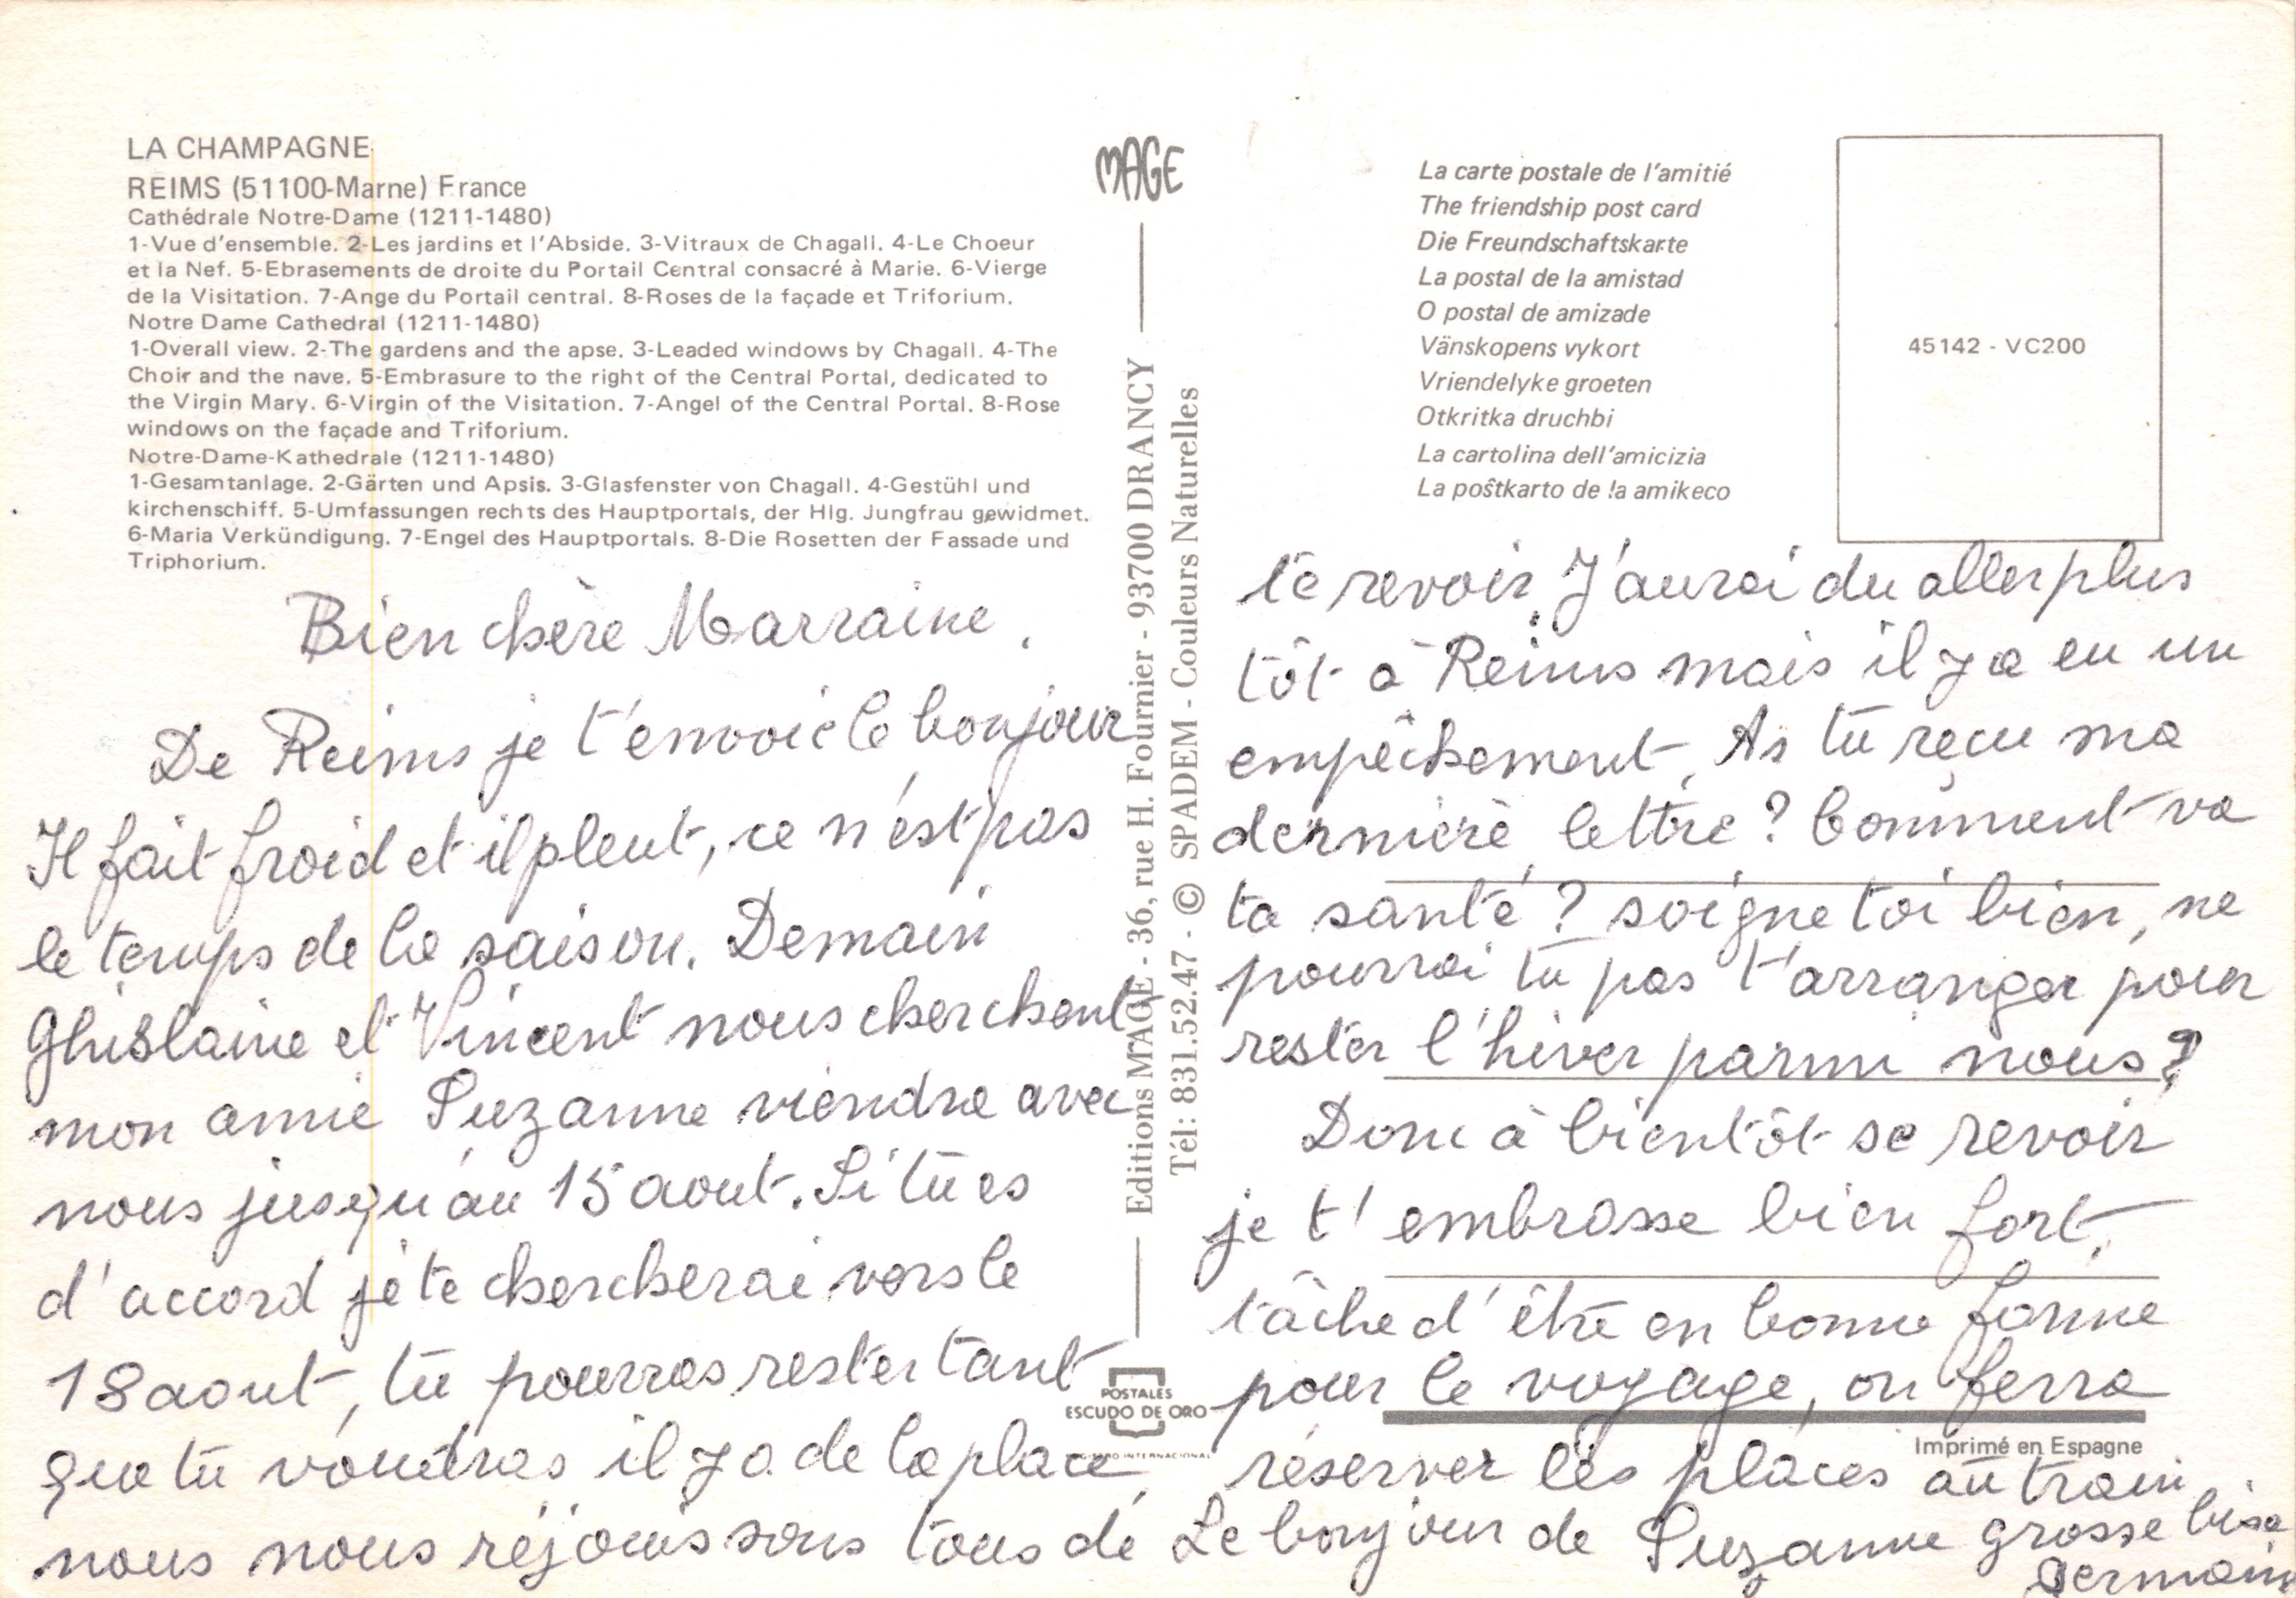 LA CHAMPAGNE
REIMS (51100-Marne) France
Cathédrale Notre-Dame (1211-1480)
1-Vue d'ensemble. 2-Les jardins et l'Abside. 3-Vitraux de Chagall. 4-Le Choeur
et la Nef. 5-Ebrasements de droite du Portail Central consacré à Marie. 6-Vierge
de la Visitation. 7-Ange du Portail central. 8-Roses de la façade et Triforium.
Notre Dame Cathedral (1211-1480)
1-Overall view. 2-The gardens and the apse. 3-Leaded windows by Chagall. 4-The
Choir and the nave. 5-Embrasure to the right of the Central Portal, dedicated to
the Virgin Mary. 6-Virgin of the Visitation. 7-Angel of the Central Portal. 8-Rose
windows on the façade and Triforium.
Notre-Dame-Kathedrale (1211-1480)
1-Gesamtanlage. 2-Gärten und Apsis. 3-Glasfenster von Chagall. 4-Gestühl und
kirchenschiff. 5-Umfassungen rechts des Hauptportals, der Hlg. Jungfrau gewidmet.
6-Maria Verkündigung. 7-Engel des Hauptportals. 8-Die Rosetten der Fassade und
Triphorium.
Bien chère Marraine.
De Reims je t'envoie le bonjour
Il fait froid et il pleut, ce n'est pas
le temps de la saison. Demain
Ghislaine et Vincent nous cherchent
mon amie Suzanne viendra avec
nous jusqu'au 15 aout. Si tu es
d'accord je te chercherai vers le
18 aout, tu pourras rester tant
que tu voudras il y a de la place,
nous nous réjouissons tous de
MAGE
Editions MAGE - 36, rue H. Fournier - 93700 DRANCY
Tél: 831.52.47 - © SPADEM - Couleurs Naturelles
POSTALES
ESCUDO DE ORO
INTERNACIONAL
La carte postale de l'amitié
The friendship post card
Die Freundschaftskarte
La postal de la amistad
O postal de amizade
Vänskopens vykort
Vriendelyke groeten
Otkritka druchbi
La cartolina dell'amicizia
La poŝtkarto de la amikeco
45142 - VC200
te revoir. J'aurai du aller plus
tôt à Reims mais il y a eu un
empêchement. As tu reçu ma
dernière lettre? Comment va
ta santé? soigne toi bien, ne
pourrai tu pas t'arranger pour
rester l'hiver parmi nous?
Donc à bientôt se revoir
je t'embrasse bien fort,
tâche d'être en bonne forme
pour le voyage, on ferra
Imprimé en Espagne
réserver les places au train
Le bonjour de Suzanne grosse bise
Germaine